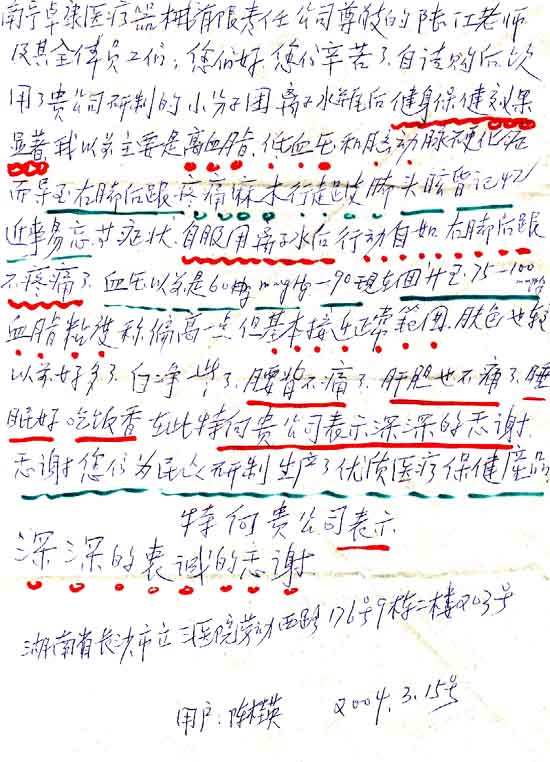 南宁卓康医疗器械有限责任公司尊敬的陆江老师
及其全体员工们；您们好 您们辛苦了.自请购后次
用了贵公司研制的小分子团离子水瓶后健身保健效果
显著我以前主要是高血脂、低血压和脑动脉硬化
而导至右脚后跟疼痛麻木行走跛脚头眩背记忆
近事易忘等症状.自服用离子水后行动自如右脚后跟
不疼痛了.血压以前是60mmHg—90现在回升至75—100mmHg
血脂粘度稍偏高一点但基本接近正常范围.肤色也较
以前好多了白净些了.腰背不痛了.肝胆也不痛了.睡
眠好吃饭香在此特向贵公司表示深深的感谢.
感谢您们为民众研制生产了优质医疗保健產品
特向贵公司表示
深深的衷诚的感谢
湖南省长沙市立三医院劳动西路176号9栋二楼203号
用户:陈桂英 2004.3.15号